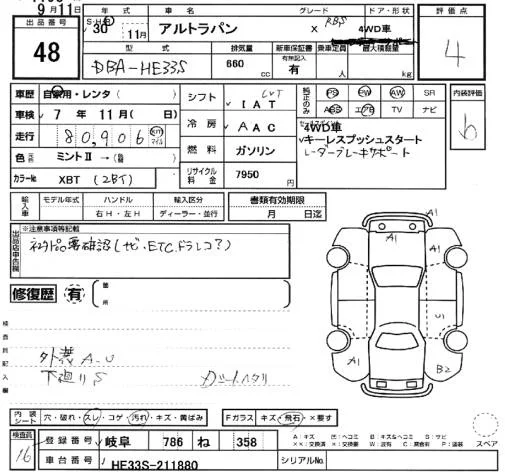 9月11日
出品番号
48
年式
S・H・R
30年 11月
車名
アルトラパン
グレード
X RBS
ドア・形状
4WD車
評価点
4
型式
DBA-HE33S
排気量
660 cc
新車保証書
有無記入
有
乗車定員
人
最大積載量
kg
車歴 自家用・レンタ( )
車検 7年 11月( 日)
走行 80,906 km マイル
色 ミントⅡ → ( )
カラーNo XBT (2BT)
シフト CVT IAT
冷房 AAC
燃料 ガソリン
リサイクル料金 7950
純正のみ
PS PW AW SR
ABS エアB TV ナビ
セールスポイント
4WD車
キーレスプッシュスタート
レーダーブレーキサポート
内装評価
b
輸入車
モデル年式
ハンドル
右H・左H
輸入区分
ディーラー・並行
書類有効期限
月 日迄
出品店申告欄
※注意事項等記載
(ナビ、ETC、ドラレコ?)
修復歴 有
箇所
検査員記入欄
外装 A.U
下廻り S
ガラス
A1
A1
A1
U1
A1
B2
内装シート
穴・破れ・スレ・コゲ・汚れ・キズ・黄ばみ
Fガラス キズ・飛石・×要す
検査員
16
登録番号 岐阜 786 ね 358
車台番号 HE33S-211880
シリアルNo.
A:キズ E:ヘコミ B:キズ&ヘコミ S:サビ
××:交換済 ×:要交換 W:波有 C:腐食有 P:塗装
スペア